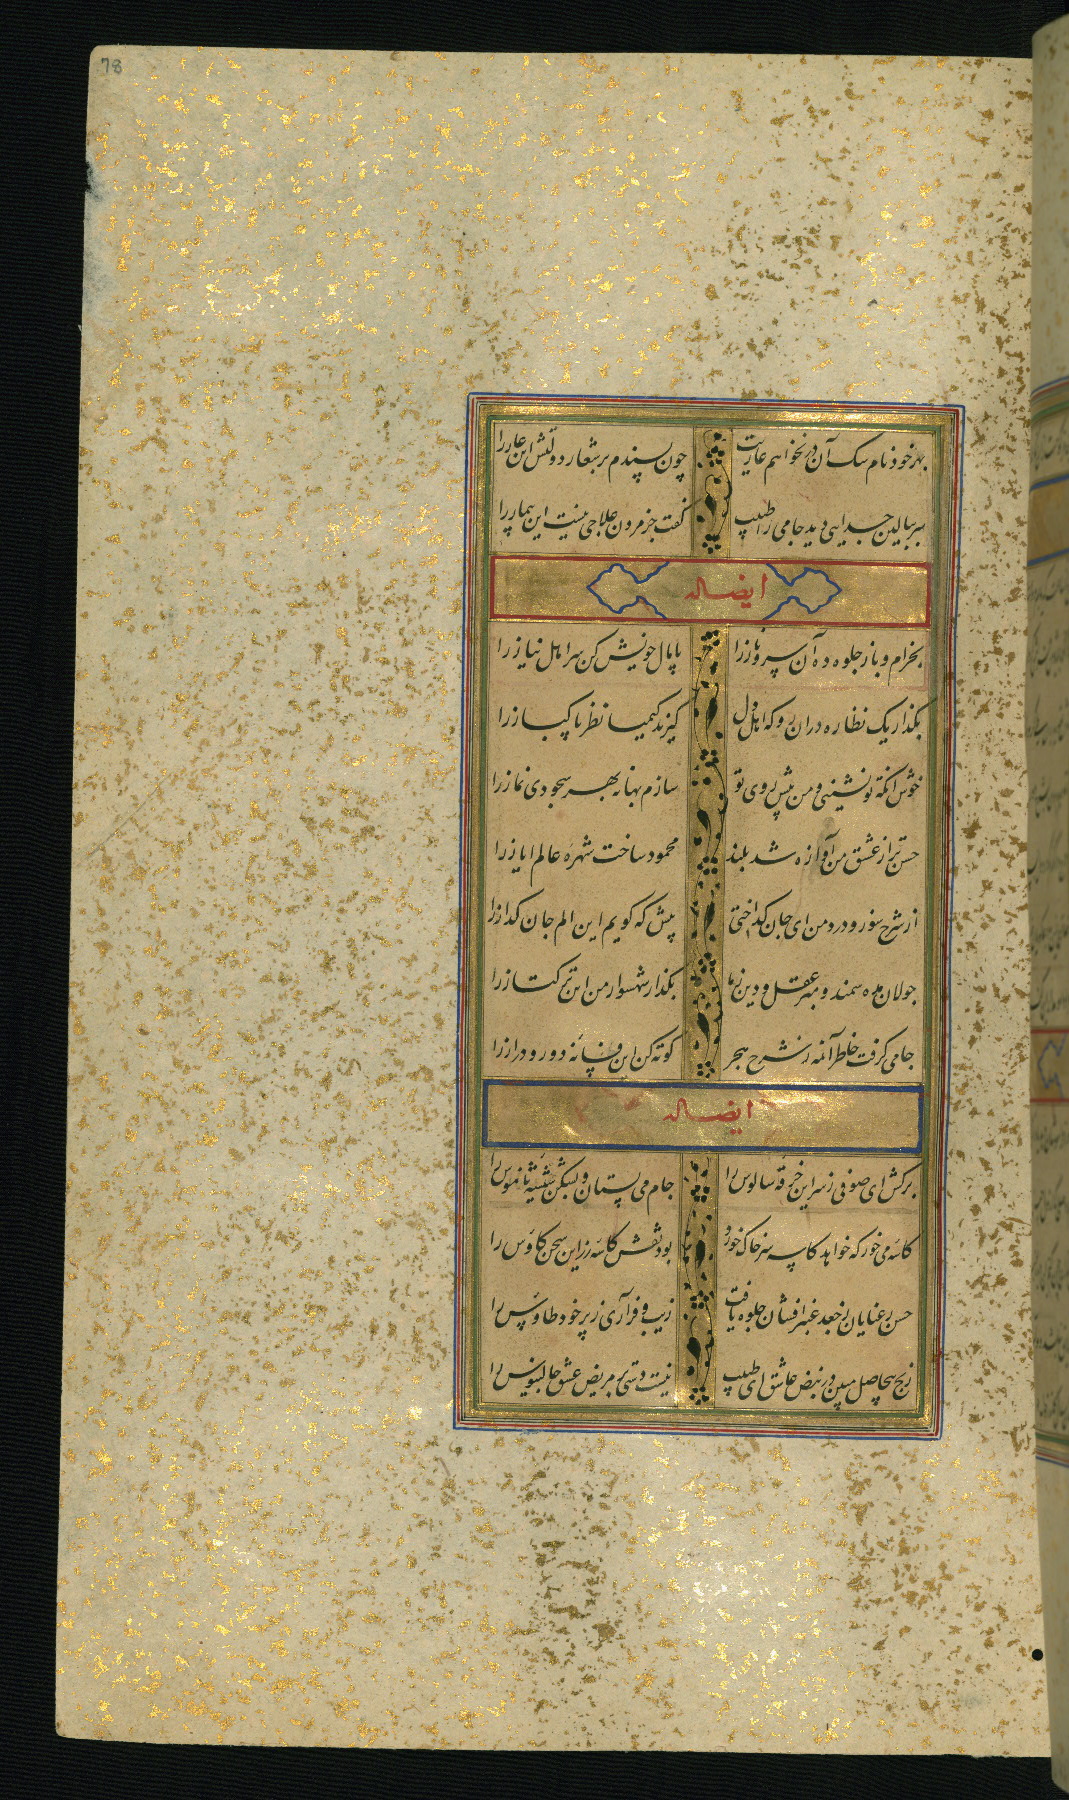 78
بهر خود نام سگ آن در نخواهم عاریت چون پسندم بر شعار دولتش این عار را
بر سر بالین جدایی دید جامی را طبیب گفت جز مردن علاجی نیست این بیمار را
ایضاله
بخرام و باز جلوه ده آن سرو ناز را پامال خویش کن سر اهل نیاز را
بگذار یک نظاره در آن رو که اهل دل گیرند کیمیا نظر پاکباز را
خوش آنکه تو نشینی و من پیش روی تو سازم بهانه بهر سجودی نماز را
حسن ترا ز عشق من آوازه شد بلند محمود ساخت شهره عالم ایاز را
از شرح سوز و درد من ای جان گداختی پیش که گویم این الم جان گداز را
جولان مده سمند و مبر عقل و دین ز ما بگذار شهسوار من این ترکتاز را
جامی گرفت خاطر آن مه ز شرح هجر کوته کن این فسانه دور و دراز را
ایضاله
برکش ای صوفی ز سر این خرقه سالوس را جام می بستان و بشکن شیشه ناموس را
کاسه می خور که خواهد کاسه سر خاک خورد بود نقش کاسه زر این سخن کاوس را
حسن رعنایان ز جعد عنبر افشان جلوه یافت زیب و فر آری ز پر خود طاوس را
رنج بیحاصل مبین در نبض عاشق ای طبیب نیست دستی بر مریض عشق جالینوس را